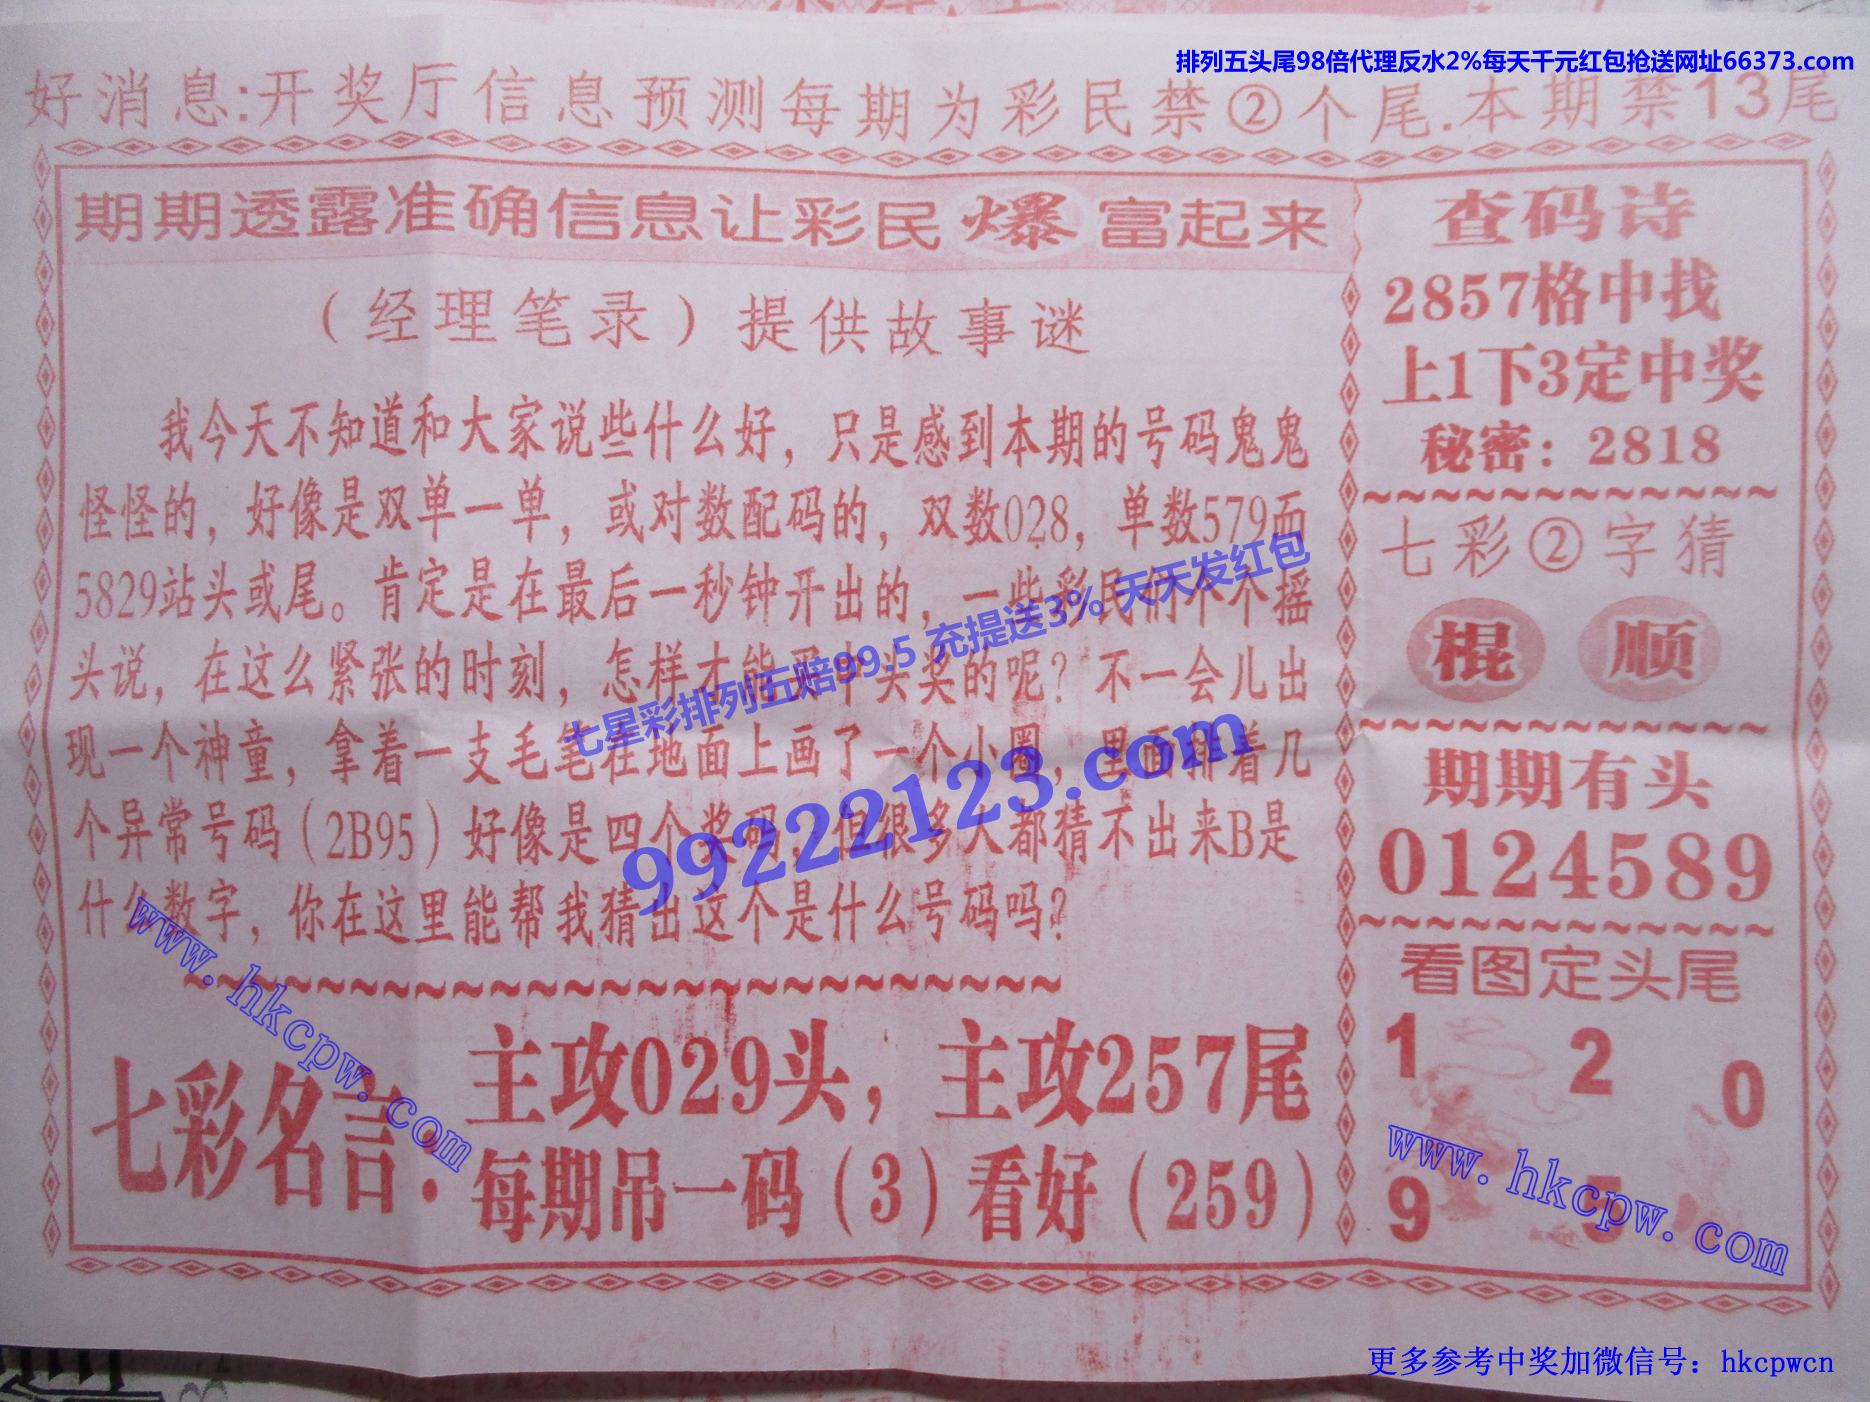 排列五头尾98倍代理反水2%每天千元红包抢送网址66373.com
好消息:开奖厅信息预测每期为彩民禁②个尾.本期禁13尾
期期透露准确信息让彩民爆富起来
（经理笔录）提供故事谜
我今天不知道和大家说些什么好，只是感到本期的号码鬼鬼
怪怪的，好像是双单一单，或对数配码的，双数028，单数579而
5829站头或尾。肯定是在最后一秒钟开出的，一些彩民们个个摇
头说，在这么紧张的时刻，怎样才能 中头奖的呢？不一会儿出
现一个神童，拿着一支毛笔在地面上画了一个小圈，里面排着几
个异常号码（2B95）好像是四个奖码，但很多人都猜不出来B是
什么数字，你在这里能帮我猜出这个是什么号码吗？
七彩名言：
主攻029头，主攻257尾
每期吊一码（3）看好（259）
查码诗
2857格中找
上1下3定中奖
秘密：2818
七彩②字猜
棍 顺
期期有头
0124589
看图定头尾
1 2 0
9 5
七星彩排列五赔99.5 充提送3% 天天发红包
99222123.com
www.hkcpw.com
www.hkcpw.com
更多参考中奖加微信号：hkcpwcn